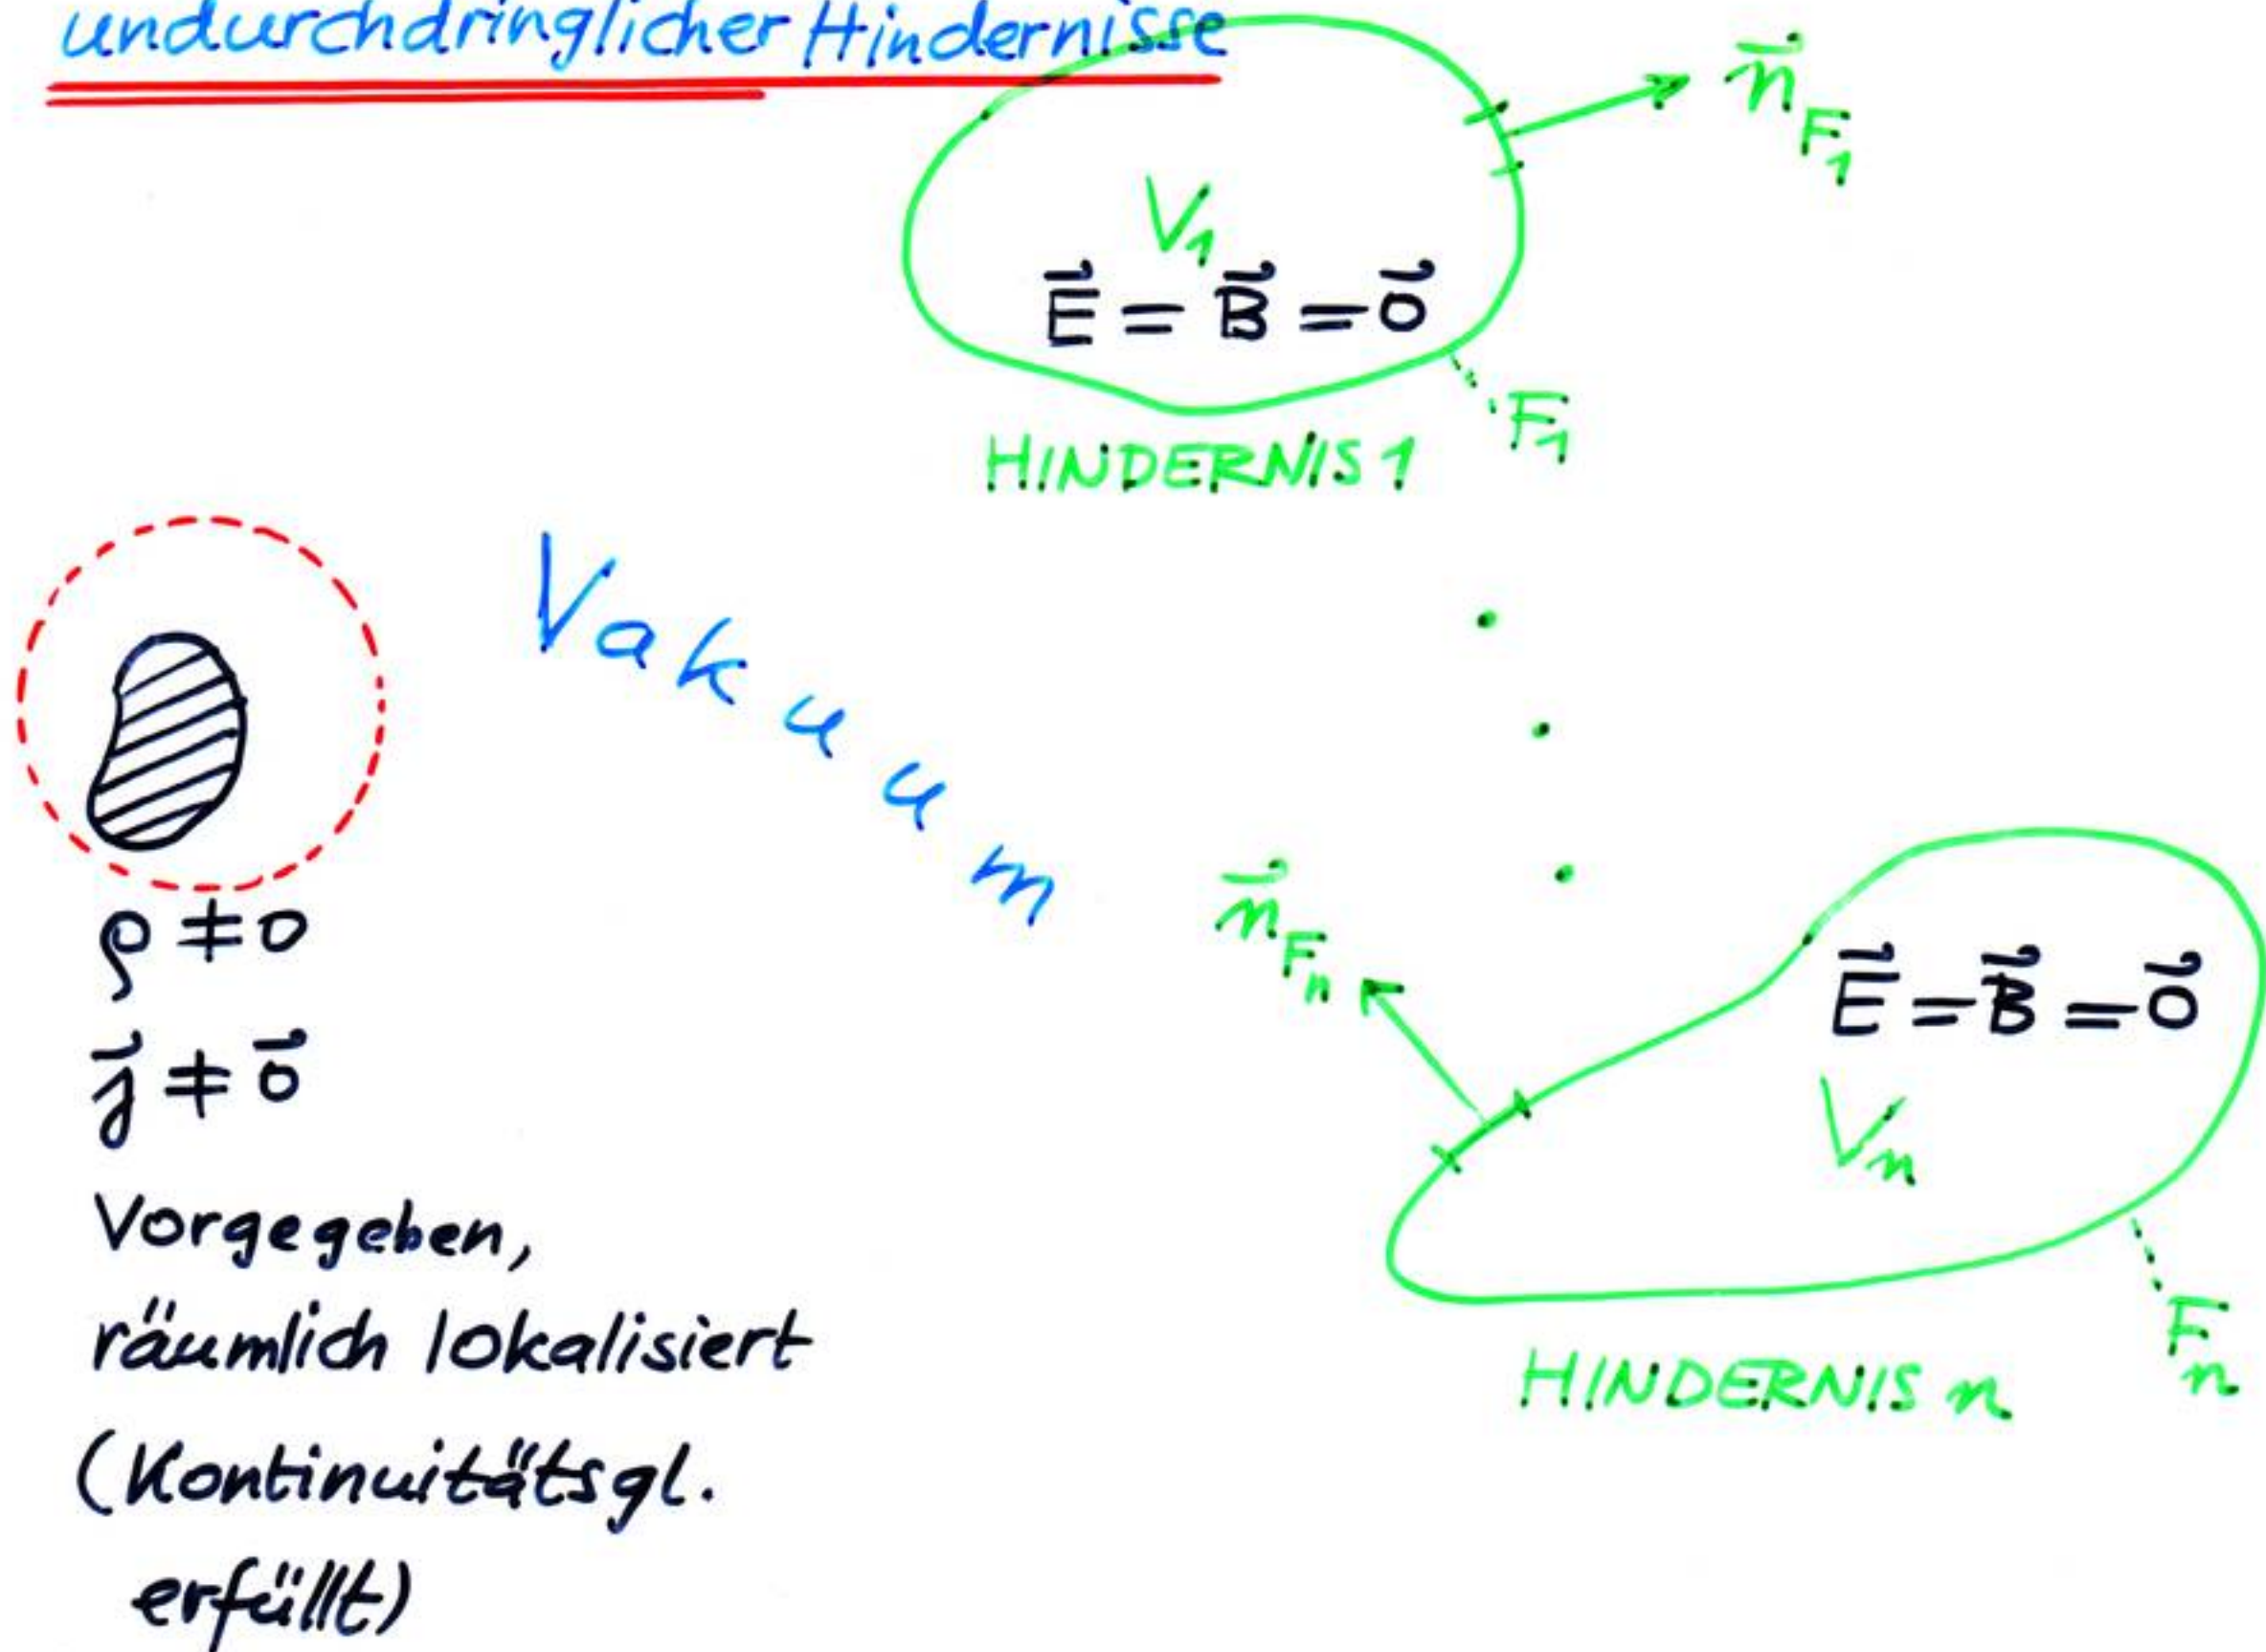 undurchdringlicher Hindernisse
n⃗_F₁
V₁
E⃗ = B⃗ = 0⃗
F₁
HINDERNIS 1
Vakuum
ρ ≠ 0
j⃗ ≠ 0⃗
Vorgegeben,
räumlich lokalisiert
(Kontinuitätsgl.
erfüllt)
n⃗_Fₙ
E⃗ = B⃗ = 0⃗
Vₙ
Fₙ
HINDERNIS n